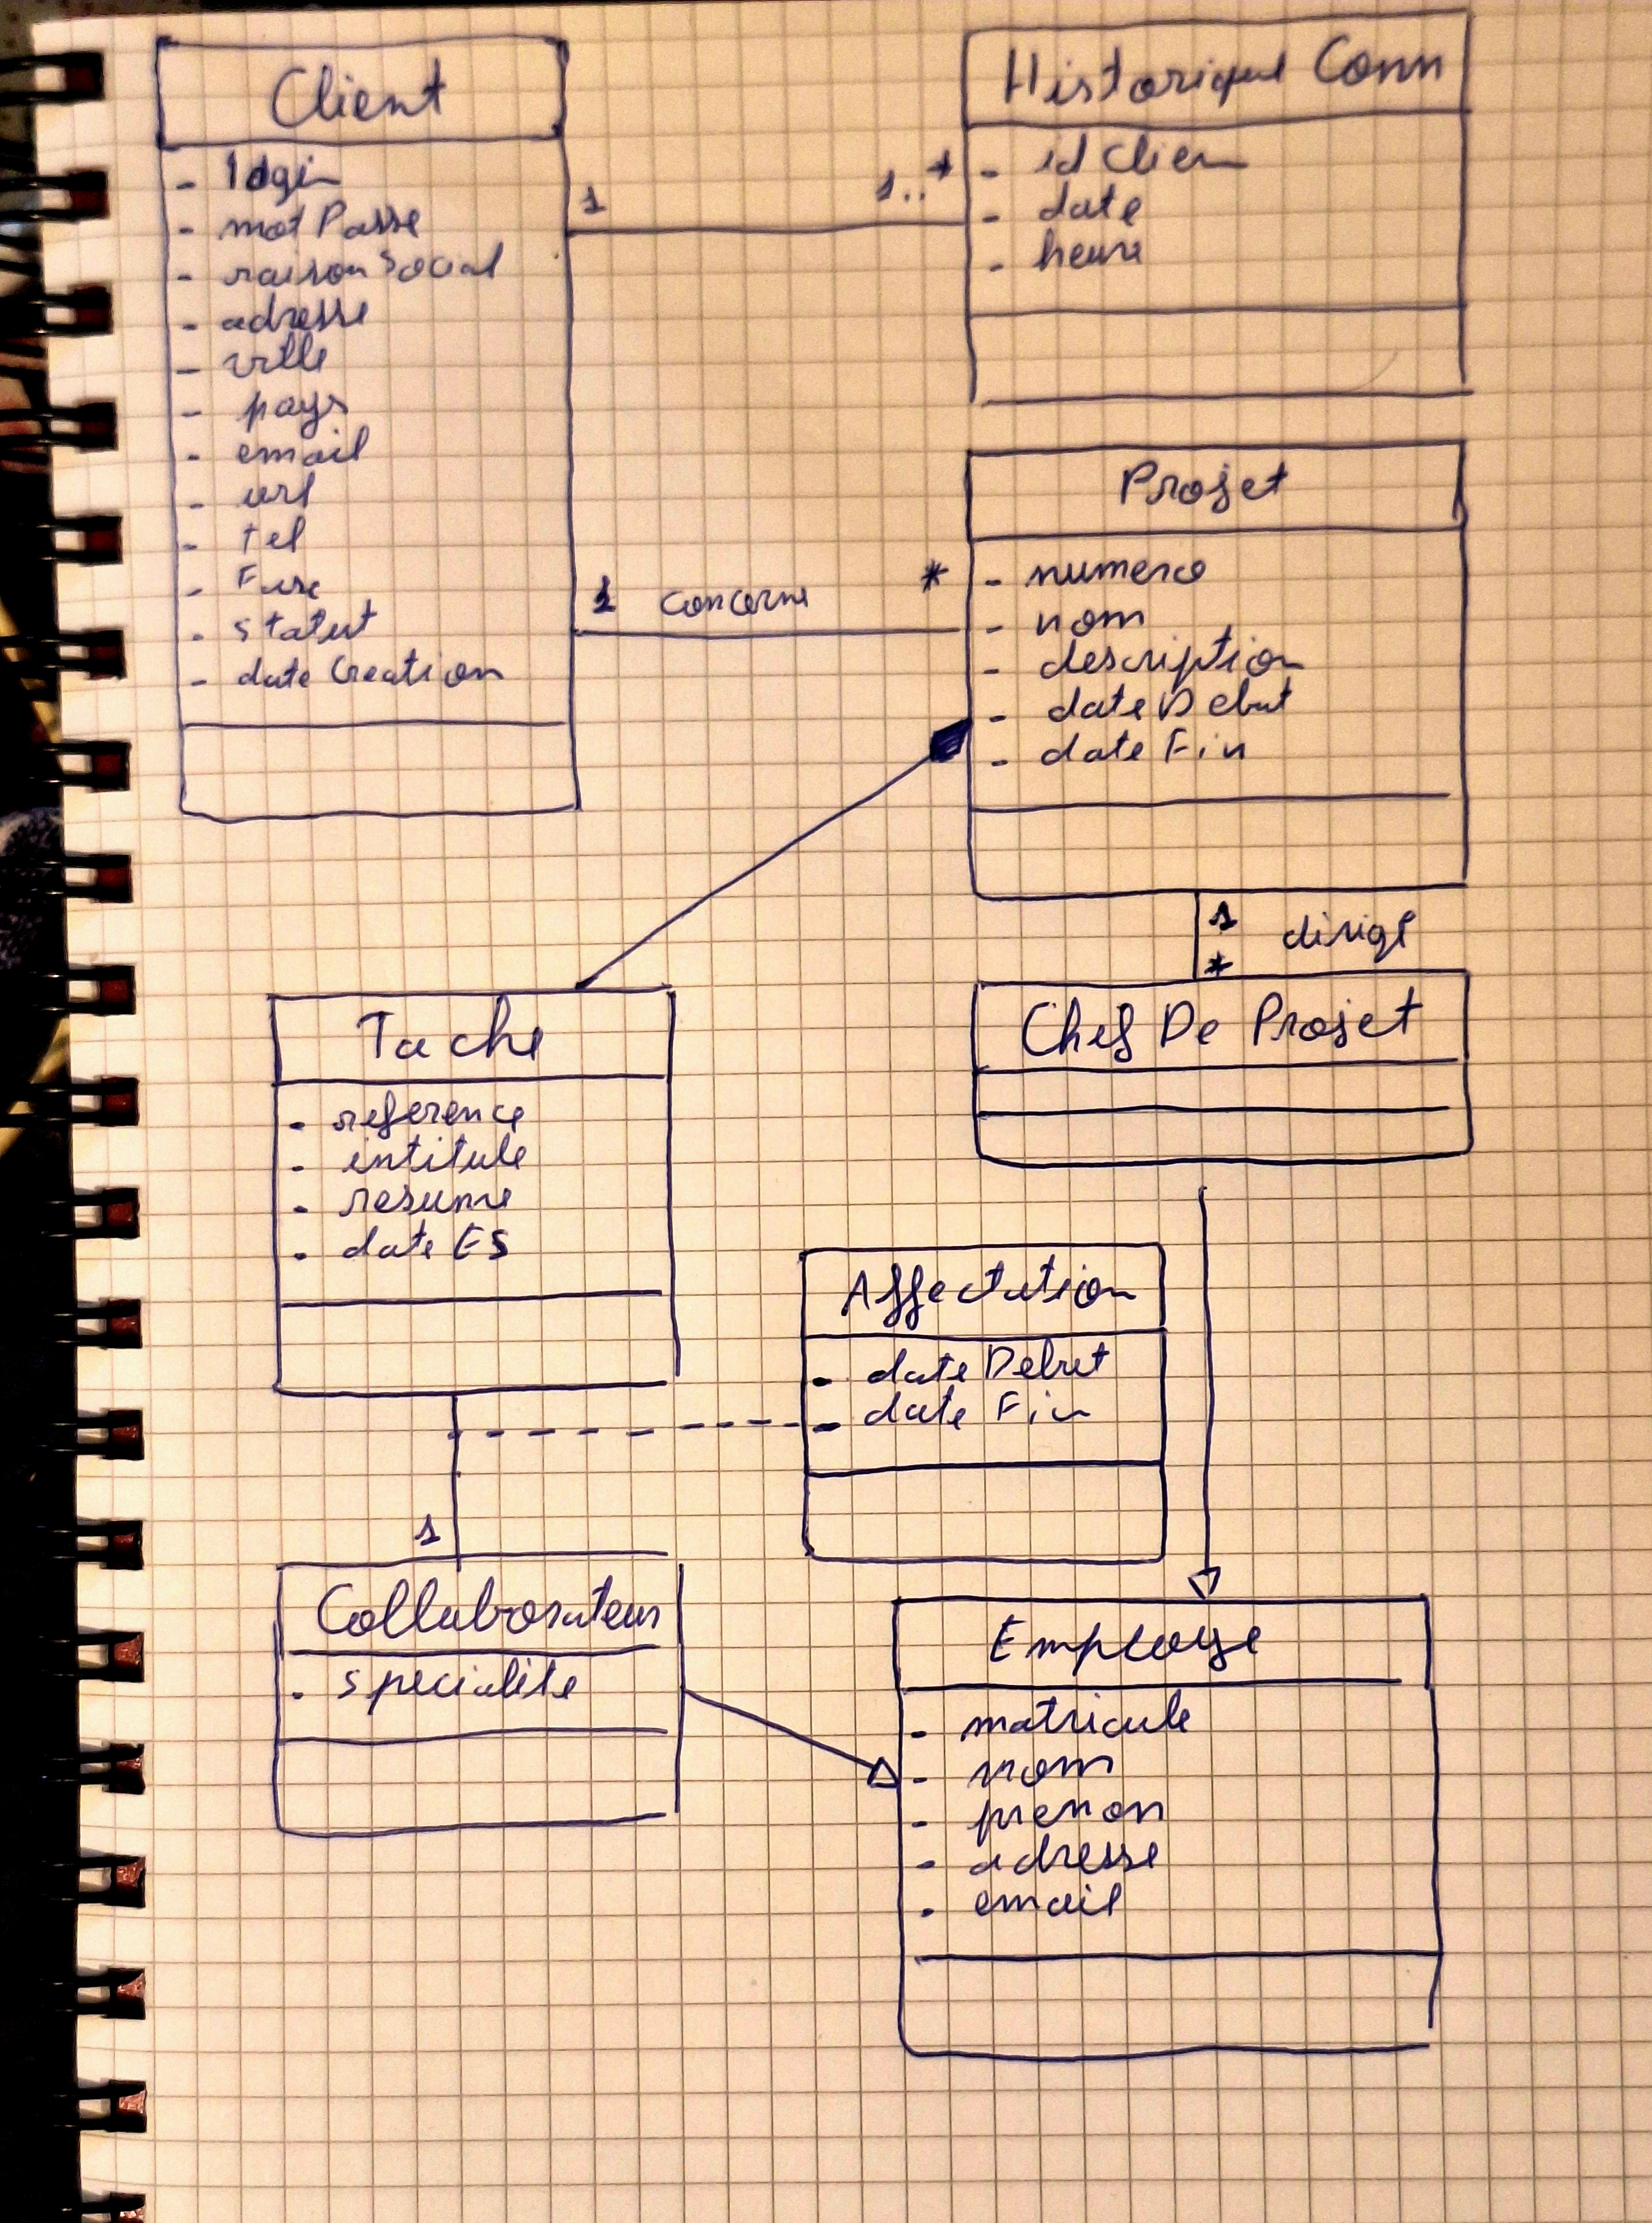 Client
- login
- mot Passe
- raison Social
- adresse
- ville
- pays
- email
- url
- tel
- Fax
- statut
- date Creation
1
1..*
Historique Conn
- id Clien
- date
- heure
1 concerne *
Projet
- numero
- nom
- description
- date Debut
- date Fin
1 dirige
*
Chef De Projet
Tache
- reference
- intitule
- resume
- date ES
Affectation
- date Debut
- date Fin
1
Collaborateur
- specialite
Employe
- matricule
- nom
- prenon
- adresse
- email